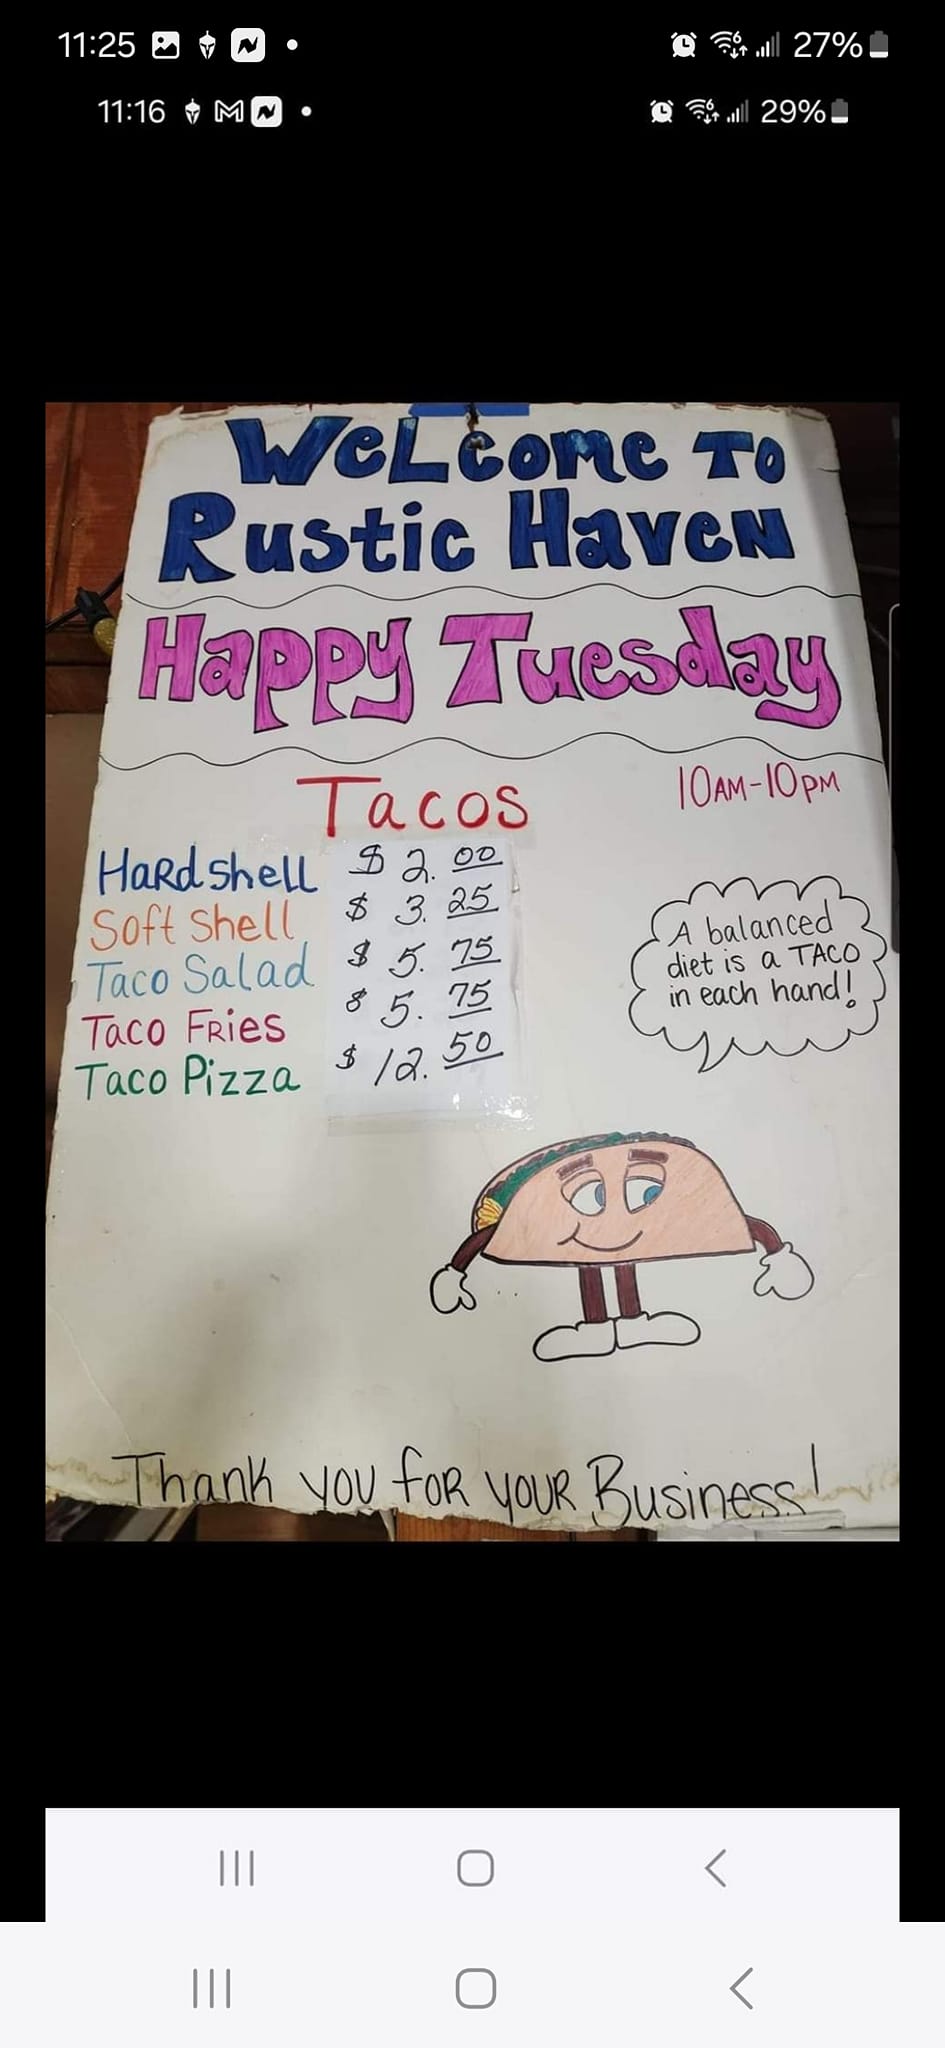 11:25 27%
11:16 29%
WeLcome To
Rustic Haven
Happy Tuesday
Tacos
10AM-10PM
Hardshell $2.00
Soft Shell $3.25
Taco Salad $5.75
Taco Fries $5.75
Taco Pizza $12.50
A balanced
diet is a TACO
in each hand!
Thank you for your Business!